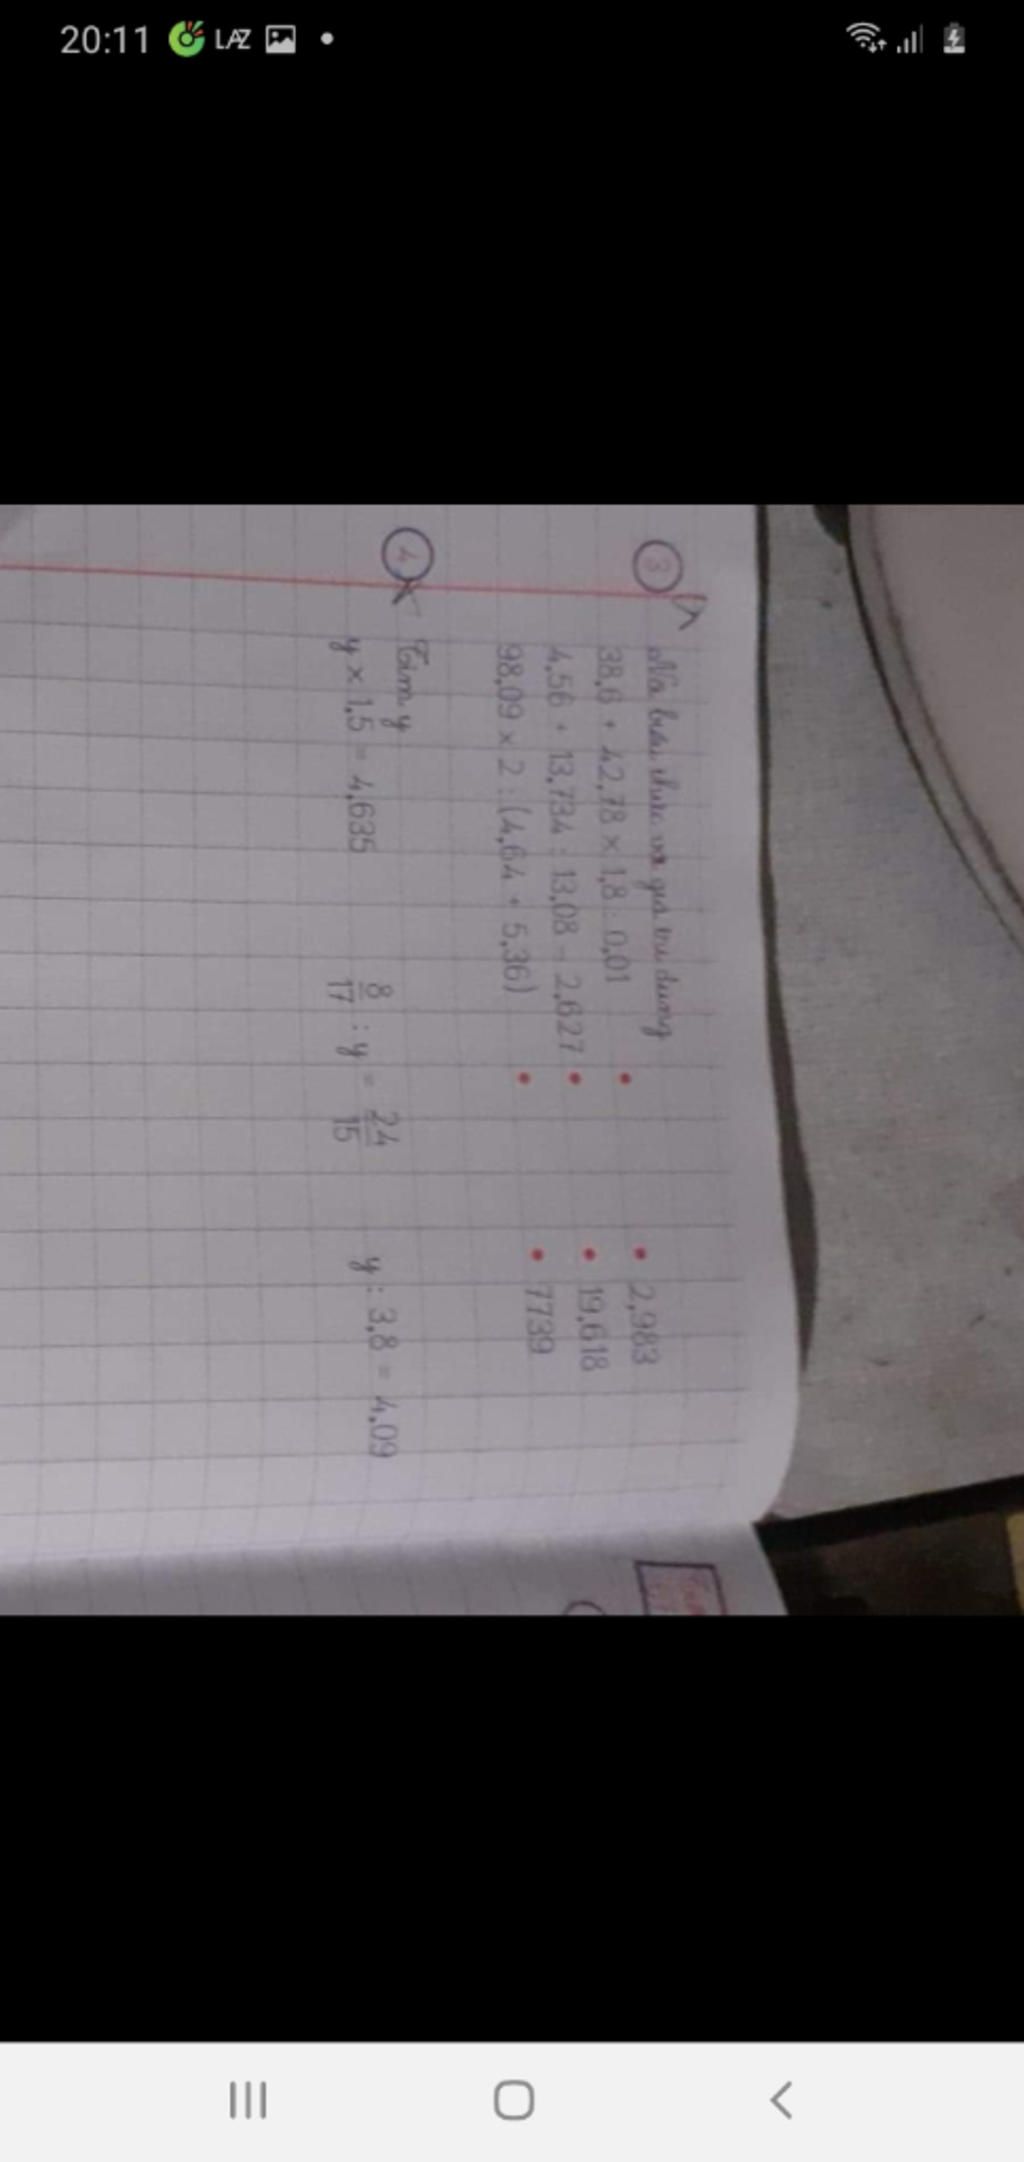 20:11 LAZ
3
Nối biểu thức và giá trị đúng
38,6 + 42,78 × 1,8 : 0,01
4,56 + 13,734 : 13,08 - 2,627
98,09 × 2 : (4,64 + 5,36)
2,983
19,618
7739
4 Tìm y
y × 1,5 = 4,635
8/17 : y = 24/15
y : 3,8 = 4,09